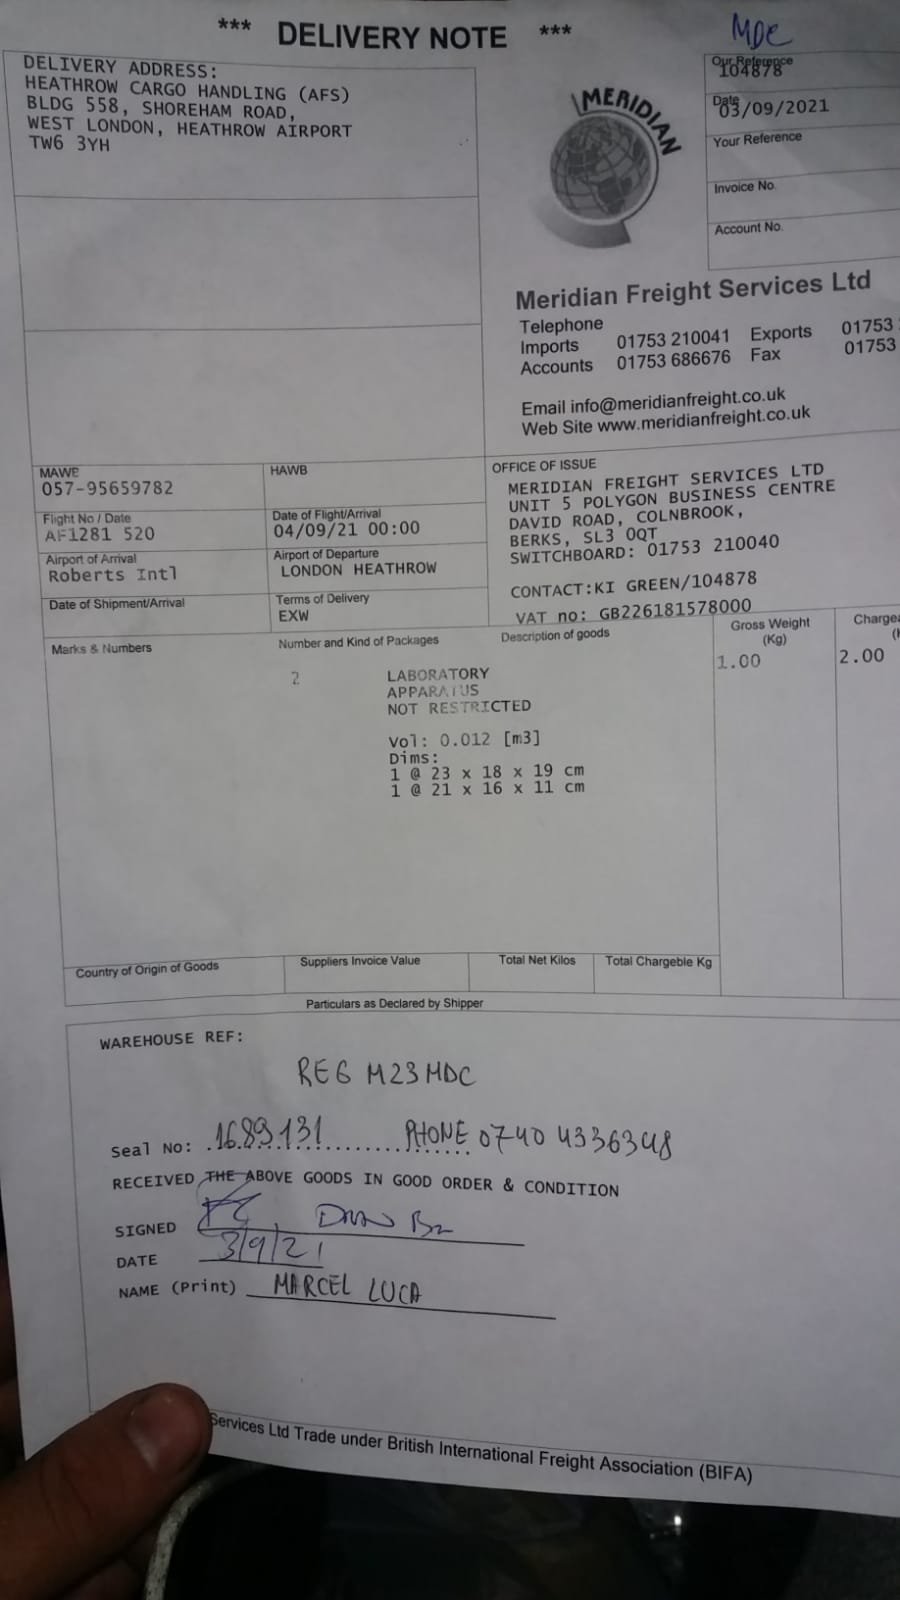 *** DELIVERY NOTE ***
MDC
DELIVERY ADDRESS:
HEATHROW CARGO HANDLING (AFS)
BLDG 558, SHOREHAM ROAD,
WEST LONDON, HEATHROW AIRPORT
TW6 3YH
MERIDIAN
Our Reference
104878
Date
03/09/2021
Your Reference
Invoice No.
Account No.
Meridian Freight Services Ltd
Telephone
Imports 01753 210041 Exports 01753
Accounts 01753 686676 Fax 01753
Email info@meridianfreight.co.uk
Web Site www.meridianfreight.co.uk
MAWB
057-95659782
HAWB
Flight No / Date
AF1281 520
Date of Flight/Arrival
04/09/21 00:00
Airport of Arrival
Roberts Intl
Airport of Departure
LONDON HEATHROW
Date of Shipment/Arrival
Terms of Delivery
EXW
OFFICE OF ISSUE
MERIDIAN FREIGHT SERVICES LTD
UNIT 5 POLYGON BUSINESS CENTRE
DAVID ROAD, COLNBROOK,
BERKS, SL3 0QT
SWITCHBOARD: 01753 210040
CONTACT:KI GREEN/104878
VAT no: GB226181578000
Marks & Numbers
Number and Kind of Packages
Description of goods
Gross Weight
(Kg)
2
LABORATORY
APPARATUS
NOT RESTRICTED
1.00
2.00
Vol: 0.012 [m3]
Dims:
1 @ 23 x 18 x 19 cm
1 @ 21 x 16 x 11 cm
Country of Origin of Goods
Suppliers Invoice Value
Total Net Kilos
Total Chargeble Kg
Particulars as Declared by Shipper
WAREHOUSE REF:
REG M23MDC
Seal No: 1689131 PHONE 0740 4336348
RECEIVED THE ABOVE GOODS IN GOOD ORDER & CONDITION
SIGNED
DATE 3/9/21
NAME (Print) MARCEL LUCA
Services Ltd Trade under British International Freight Association (BIFA)